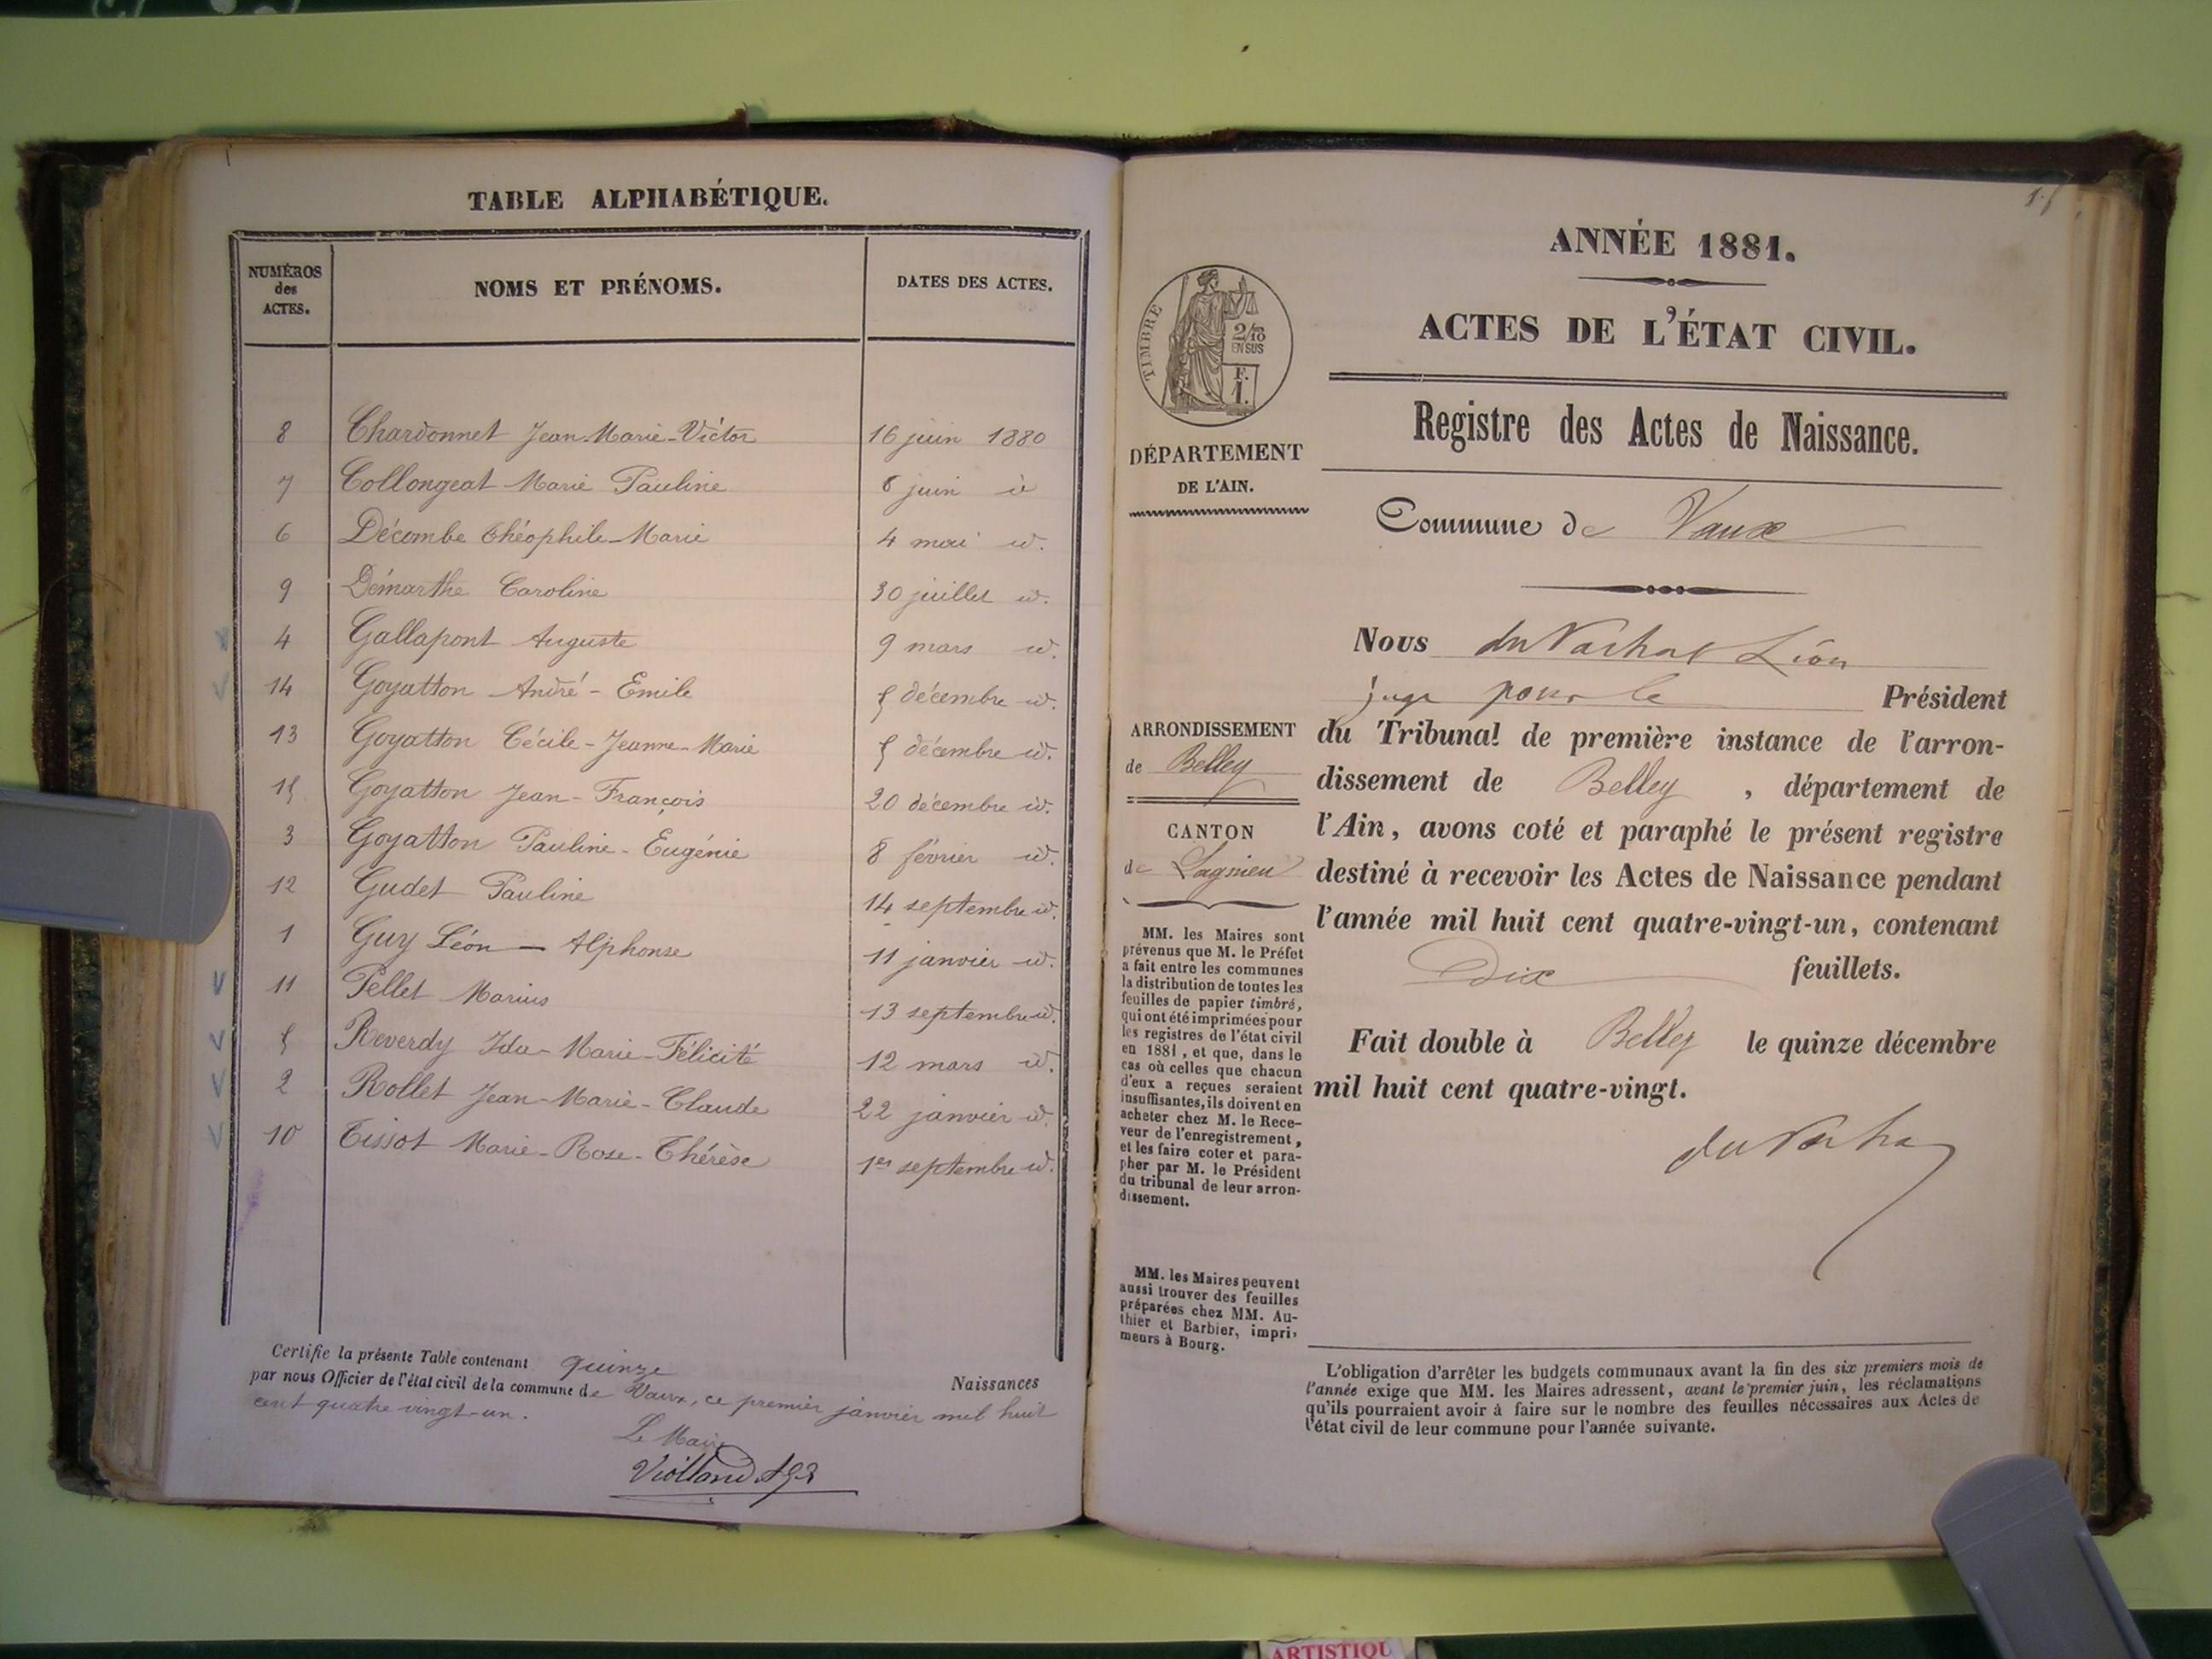 TABLE ALPHABÉTIQUE.
NUMÉROS des ACTES. NOMS ET PRÉNOMS. DATES DES ACTES.
8 Chardonnet Jean-Marie-Victor 16 juin 1880
7 Collongeat Marie Pauline 8 juin id
6 Décombe Théophile-Marie 4 mai id.
9 Démarthe Caroline 30 juillet id.
4 Gallapont Auguste 9 mars id.
14 Goyatton André-Emile 5 décembre id.
13 Goyatton Cécile-Jeanne-Marie 5 décembre id.
15 Goyatton Jean-François 20 décembre id.
3 Goyatton Pauline-Eugénie 8 février id.
12 Gudet Pauline 14 septembre id.
1 Guy Léon-Alphonse 11 janvier id.
11 Pellet Marius 13 septembre id.
5 Reverdy Ida-Marie-Félicité 12 mars id.
2 Rollet Jean-Marie-Claude 22 janvier id.
10 Tissot Marie-Rose-Thérèse 1er septembre id.
Certifie la présente Table contenant quinze Naissances
par nous Officier de l'état civil de la commune de Vaux, ce premier janvier mil huit
cent quatre vingt-un.
Le Maire
Violland
ANNÉE 1881.
ACTES DE L'ÉTAT CIVIL.
Registre des Actes de Naissance.
Commune de Vaux
TIMBRE
2/10
EN SUS
F.
1.
DÉPARTEMENT
DE L'AIN.
ARRONDISSEMENT
de Belley
CANTON
de Lagnieu
MM. les Maires sont
prévenus que M. le Préfet
a fait entre les communes
la distribution de toutes les
feuilles de papier timbré,
qui ont été imprimées pour
les registres de l'état civil
en 1881, et que, dans le
cas où celles que chacun
d'eux a reçues seraient
insuffisantes, ils doivent en
acheter chez M. le Rece-
veur de l'enregistrement,
et les faire coter et para-
pher par M. le Président
du tribunal de leur arron-
dissement.
MM. les Maires peuvent
aussi trouver des feuilles
préparées chez MM. Au-
thier et Barbier, impri-
meurs à Bourg.
Nous du Vachat Léon
juge pour le Président
du Tribunal de première instance de l'arron-
dissement de Belley, département de
l'Ain, avons coté et paraphé le présent registre
destiné à recevoir les Actes de Naissance pendant
l'année mil huit cent quatre-vingt-un, contenant
Dix feuillets.
Fait double à Belley le quinze décembre
mil huit cent quatre-vingt.
du Vachat
L'obligation d'arrêter les budgets communaux avant la fin des six premiers mois de
l'année exige que MM. les Maires adressent, avant le premier juin, les réclamations
qu'ils pourraient avoir à faire sur le nombre des feuilles nécessaires aux Actes de
l'état civil de leur commune pour l'année suivante.
ARTISTIQU